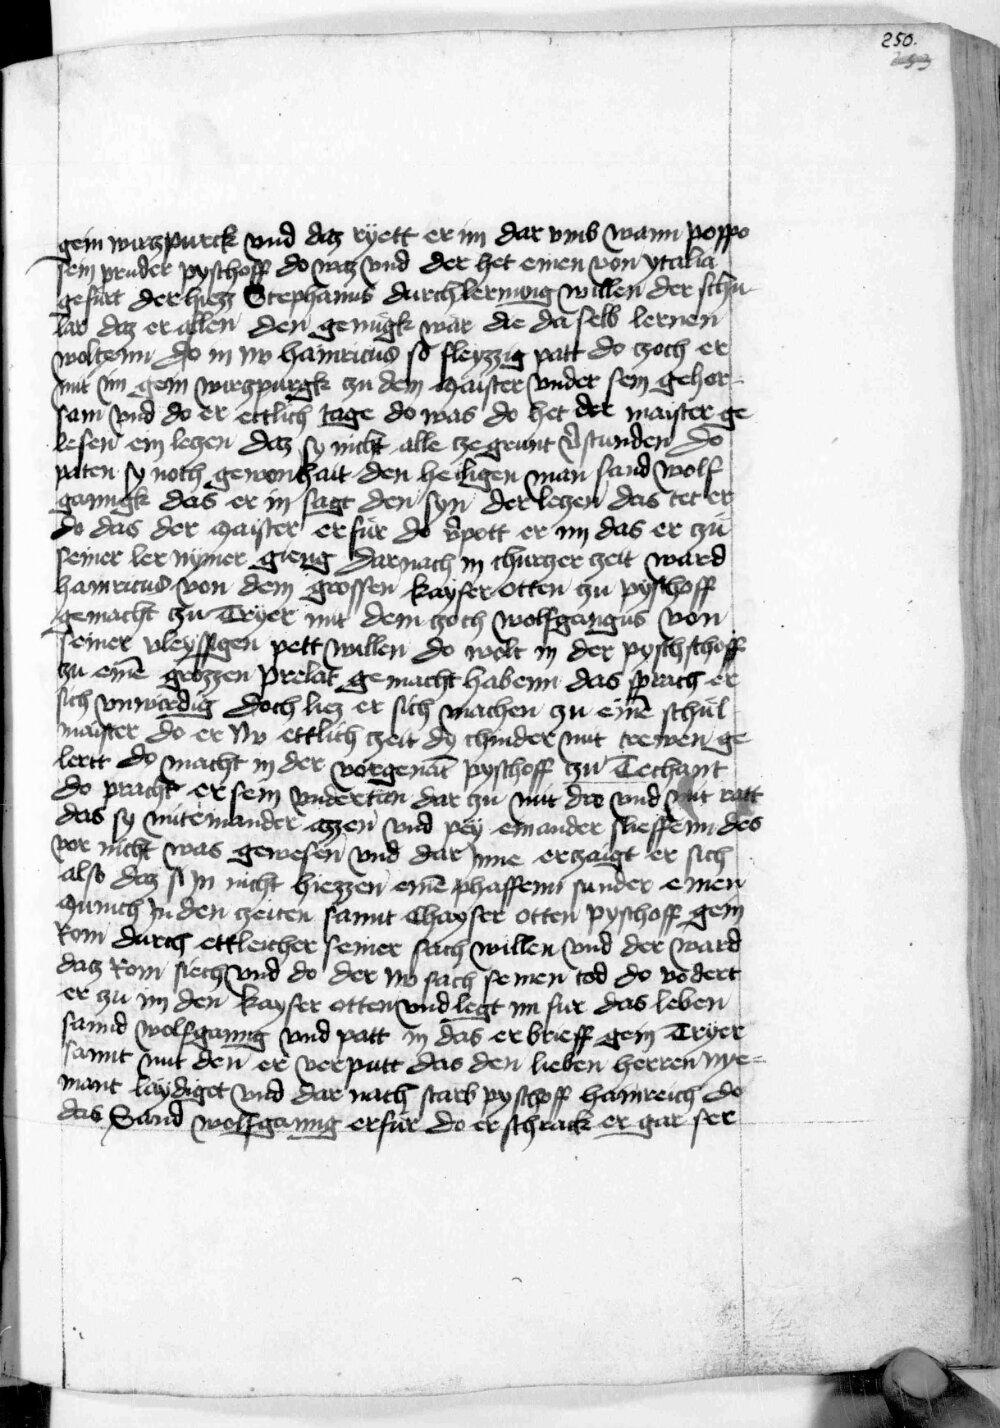 250.
gein wirczpurck vnd daz ryett er im dar vmb wann poppo
sein pruder pyschoff do waz vnd der het einen von ytalia
gefürt der hiezz Stephanus durch lernung willen der schu-
lar daz er allen den genügk wär die da selb lernen
woltenn do in nw hainricus so fleyzzig patt do zoch er
mit im gein wirczpurgk zu dem maister vnder sein gehor-
sam vnd do er ettlich tage do was do het der maister ge
lesen ein leczen daz sy nicht alle ze grunt v̉stunden do
paten sy noch gewonhait den heiligen man sand wolf
ganngk das er in sagt den syn der leczen das tet er
do das der maister erfür do v̉pott er im das er zü
seiner ler nymer gieng darnach in churczer zeit ward
hainricus von dem grossen kayser otten zu pyschoff
gemacht zu Tryer mit dem zoch wolfgangus von
seiner vleyssigen pett willen do wolt in der pyschschoff
zu einē grozzen prelat gemacht habenn das sprach er
sich vnwirdig doch liez er sich machen zu einē schül-
maister do er nw ettlich zeit dy chinder mit trewen ge
lertt do macht in der vorgenāt pyschoff zu Techant
do pracht er sein vndertan dar zu mit dro vnd mit ratt
das sy miteinander azzen vnd pey einander slieffenn des
vor nicht was gewesen vnd dar Inne erzaigt er sich
also daz sy In nicht hiezzen einē phaffenn sunder einen
münich In den zeiten sannt Chayser otten pyschoff gein
Rom durch ettleicher seiner sach willen vnd der ward
daz Rom siech vnd do der nw sach seinen tod do vodert
er zu im den kayser otten vnd legt im fur das leben
sannd wolfganng vnd patt in das er brieff gein Tryer
sannt mit den er verputt das den lieben herren nye-
mant laydiget vnd dar nach starb pyschoff hainreich do
das Sand wolfganng erfür do erschrack er gar ser